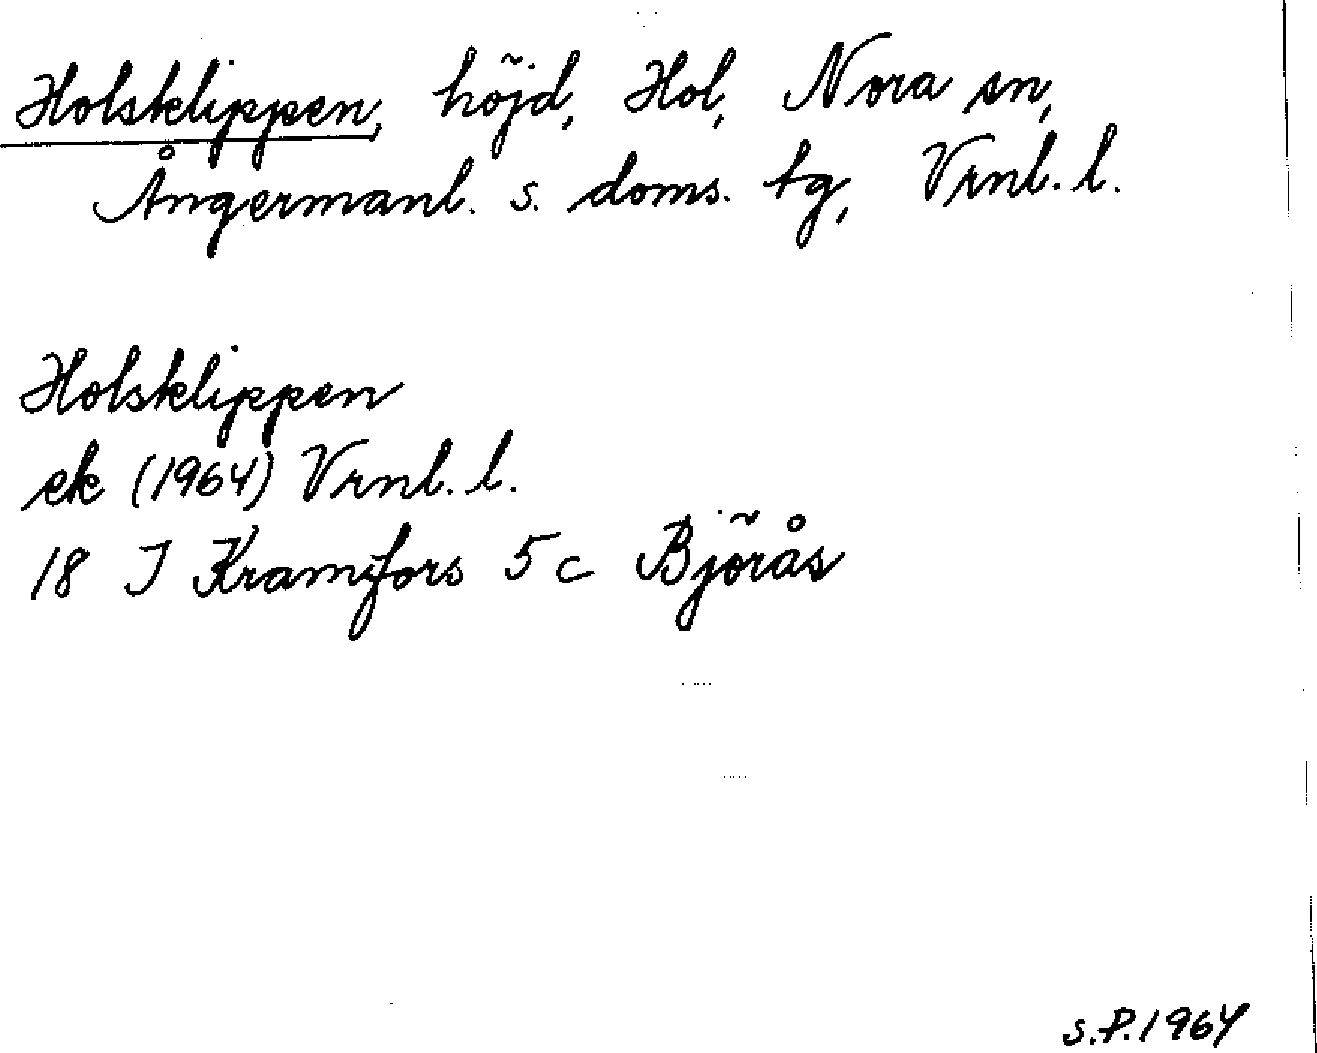 Holsklippen, höjd, Hol, Nora sn,
Ångermanl. s. doms. tg, Vrnl. l.
Holsklippen
ek (1964) Vrnl. l.
18 I Kramfors 5 c Björås
S.P. 1964